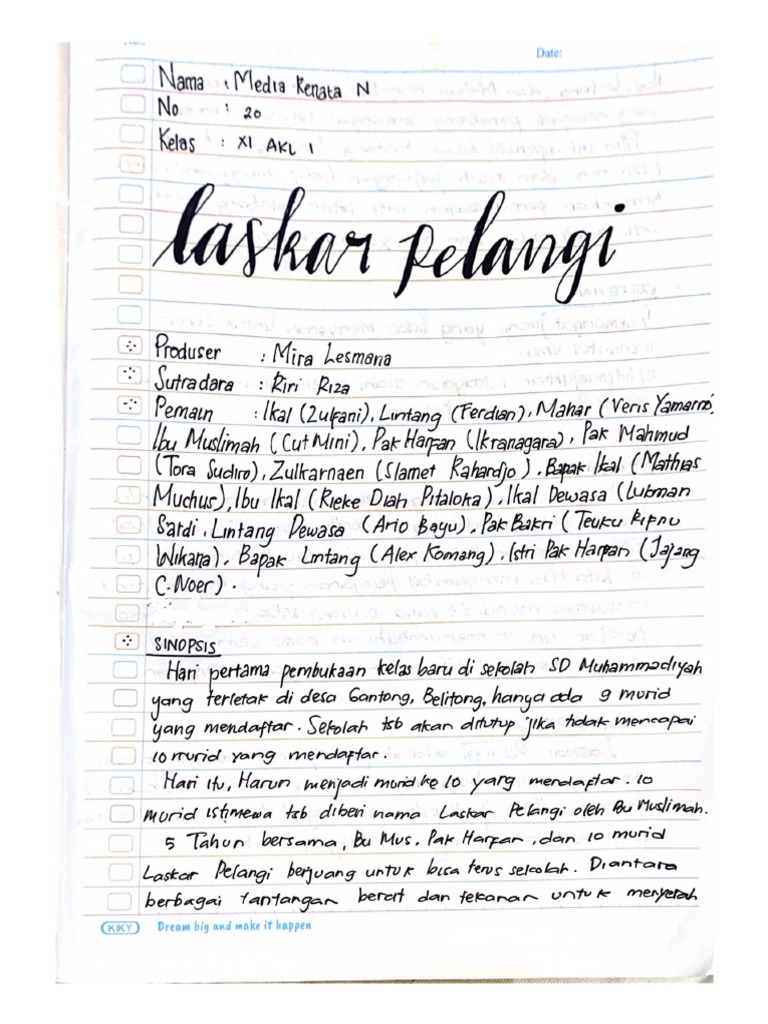 Date:
Nama : Media Renata N
No : 20
Kelas : XI AKL 1
laskar pelangi
Produser : Mira Lesmana
Sutradara : Riri Riza
Pemain : Ikal (Zulfani), Lintang (Ferdian), Mahar (Veris Yamarno)
Ibu Muslimah (Cut Mini), Pak Harfan (Ikranagara), Pak Mahmud
(Tora Sudiro), Zulkarnaen (Slamet Rahardjo), Bapak Ikal (Mathias
Muchus), Ibu Ikal (Rieke Diah Pitaloka), Ikal Dewasa (Lukman
Sardi, Lintang Dewasa (Ario Bayu), Pak Bakri (Teuku Rifnu
Wikana), Bapak Lintang (Alex Komang), Istri Pak Harfan (Jajang
C.Noer).
SINOPSIS
Hari pertama pembukaan kelas baru di sekolah SD Muhammadiyah
yang terletak di desa Gantong, Belitong, hanya ada 9 murid
yang mendaftar. Sekolah tsb akan ditutup jika tidak mencapai
10 murid yang mendaftar.
Hari itu, Harun menjadi murid ke 10 yang mendaftar. 10
murid istimewa tsb diberi nama Laskar Pelangi oleh Bu Muslimah.
5 Tahun bersama, Bu Mus, Pak Harfan, dan 10 murid
Laskar Pelangi berjuang untuk bisa terus sekolah. Diantara
berbagai tantangan berat dan tekanan untuk menyerah
KIKY Dream big and make it happen